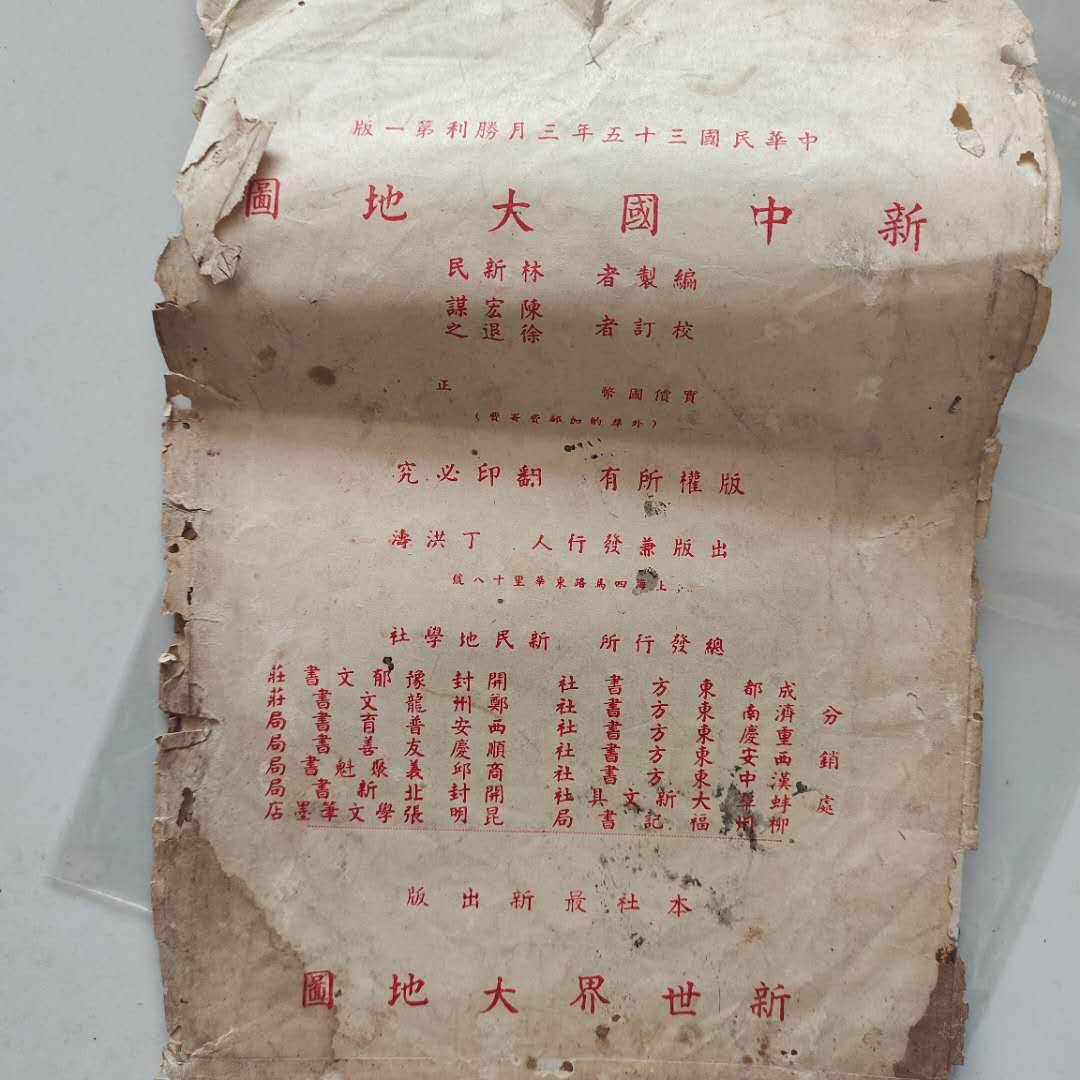 中華民國三十五年三月勝利第一版
新中國大地圖
編製者 林新民
校訂者 陳宏謀
徐退之
實價國幣 正
(外埠酌加郵寄費)
版權所有 翻印必究
出版兼發行人 丁洪濤
上海四馬路東華里十八號
總發行所 新民地學社
分銷處
成都東方書社 開封豫郁文書莊
濟南東方書社 鄭州龍文書莊
重慶東方書社 西安普育書局
西安東方書社 順慶友善書局
漢中東方書社 商邱義聚魁書局
蚌埠大新文具社 開封北新書局
柳州福記書局 昆明張學文筆墨店
本社最新出版
新世界大地圖